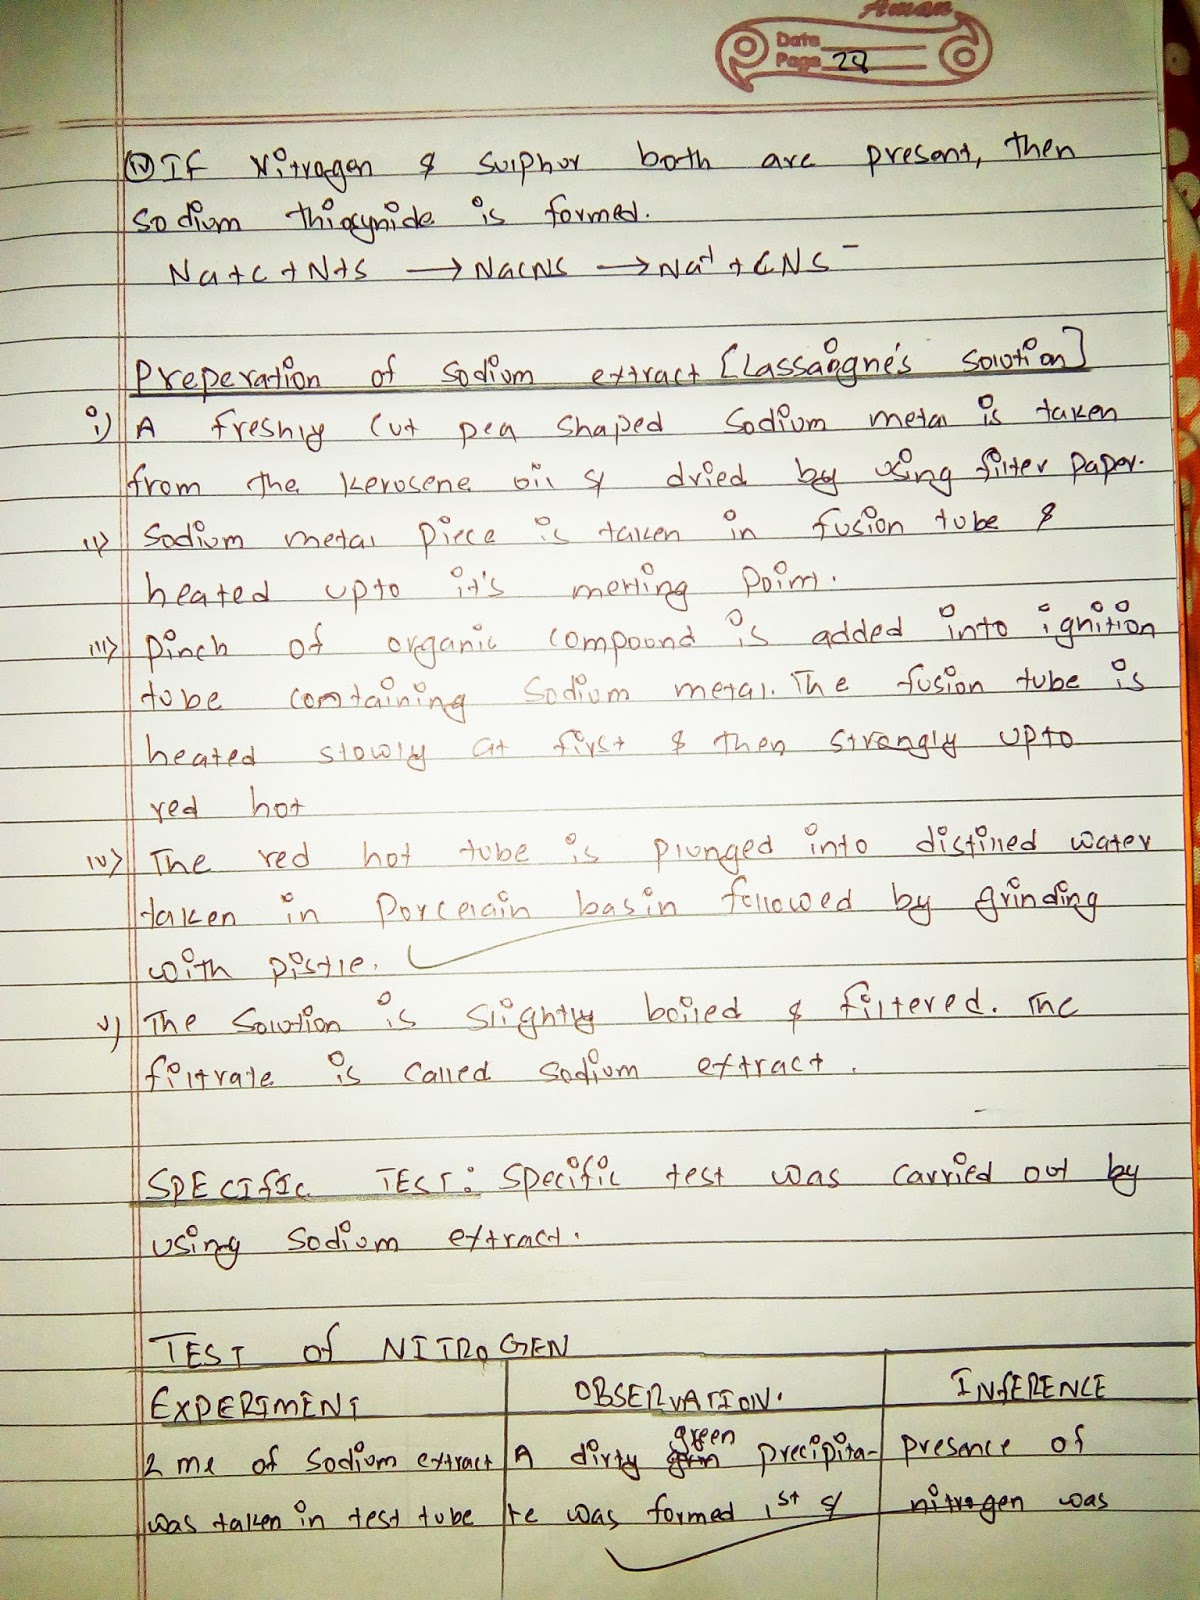 Aman
Date
Page 28
(iv) If Nitrogen & Sulphur both are present, then
Sodium thiocynide is formed.
Na+C+N+S → NaCNS → Na⁺ + CNS⁻
Preperation of Sodium extract [Lassaigne's Solution]
i) A freshly cut pea shaped Sodium metal is taken
from the kerosene oil & dried by using filter paper.
ii) Sodium metal piece is taken in fusion tube &
heated upto it's melting point.
iii) pinch of organic compound is added into ignition
tube containing Sodium metal. The fusion tube is
heated slowly at first & then strongly upto
red hot
iv) The red hot tube is plunged into distilled water
taken in porcelain basin followed by grinding
with pistle.
v) The Solution is slightly boiled & filtered. The
filtrate is called Sodium extract.
SPECIfIC TEST: Specific test was carried out by
using Sodium extract.
TEST of NITROGEN
EXPERIMENT OBSERVATION. INfERENCE
2 ml of Sodium extract A dirty green precipita- presence of
was taken in test tube te was formed 1st & nitrogen was